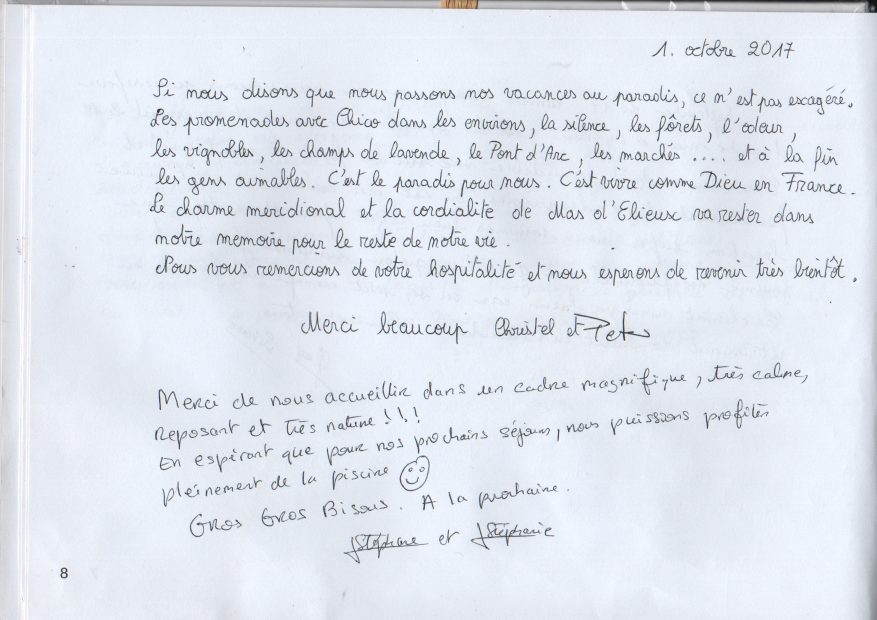 1. octobre 2017
Si nous disons que nous passons nos vacances au paradis, ce n'est pas exagéré.
Les promenades avec Chico dans les environs, la silence, les fôrets, l'odeur,
les vignobles, les champs de lavende, le Pont d'Arc, les marchés .... et à la fin
les gens aimables. C'est le paradis pour nous. C'est vivre comme Dieu en France.
Le charme meridional et la cordialité de Mas d'Elieuse va rester dans
notre memoire pour le reste de notre vie.
Nous vous remercions de votre hospitalité et nous esperons de revenir très bientôt.
Merci beaucoup Christel et Peter
Merci de nous accueillir dans un cadre magnifique, très calme,
reposant et très nature!!!
En espérant que pour nos prochains séjours, nous puissions profiter
pleinement de la piscine ☺
Gros Gros Bisous. A la prochaine.
Stéphane et Stéphanie
8